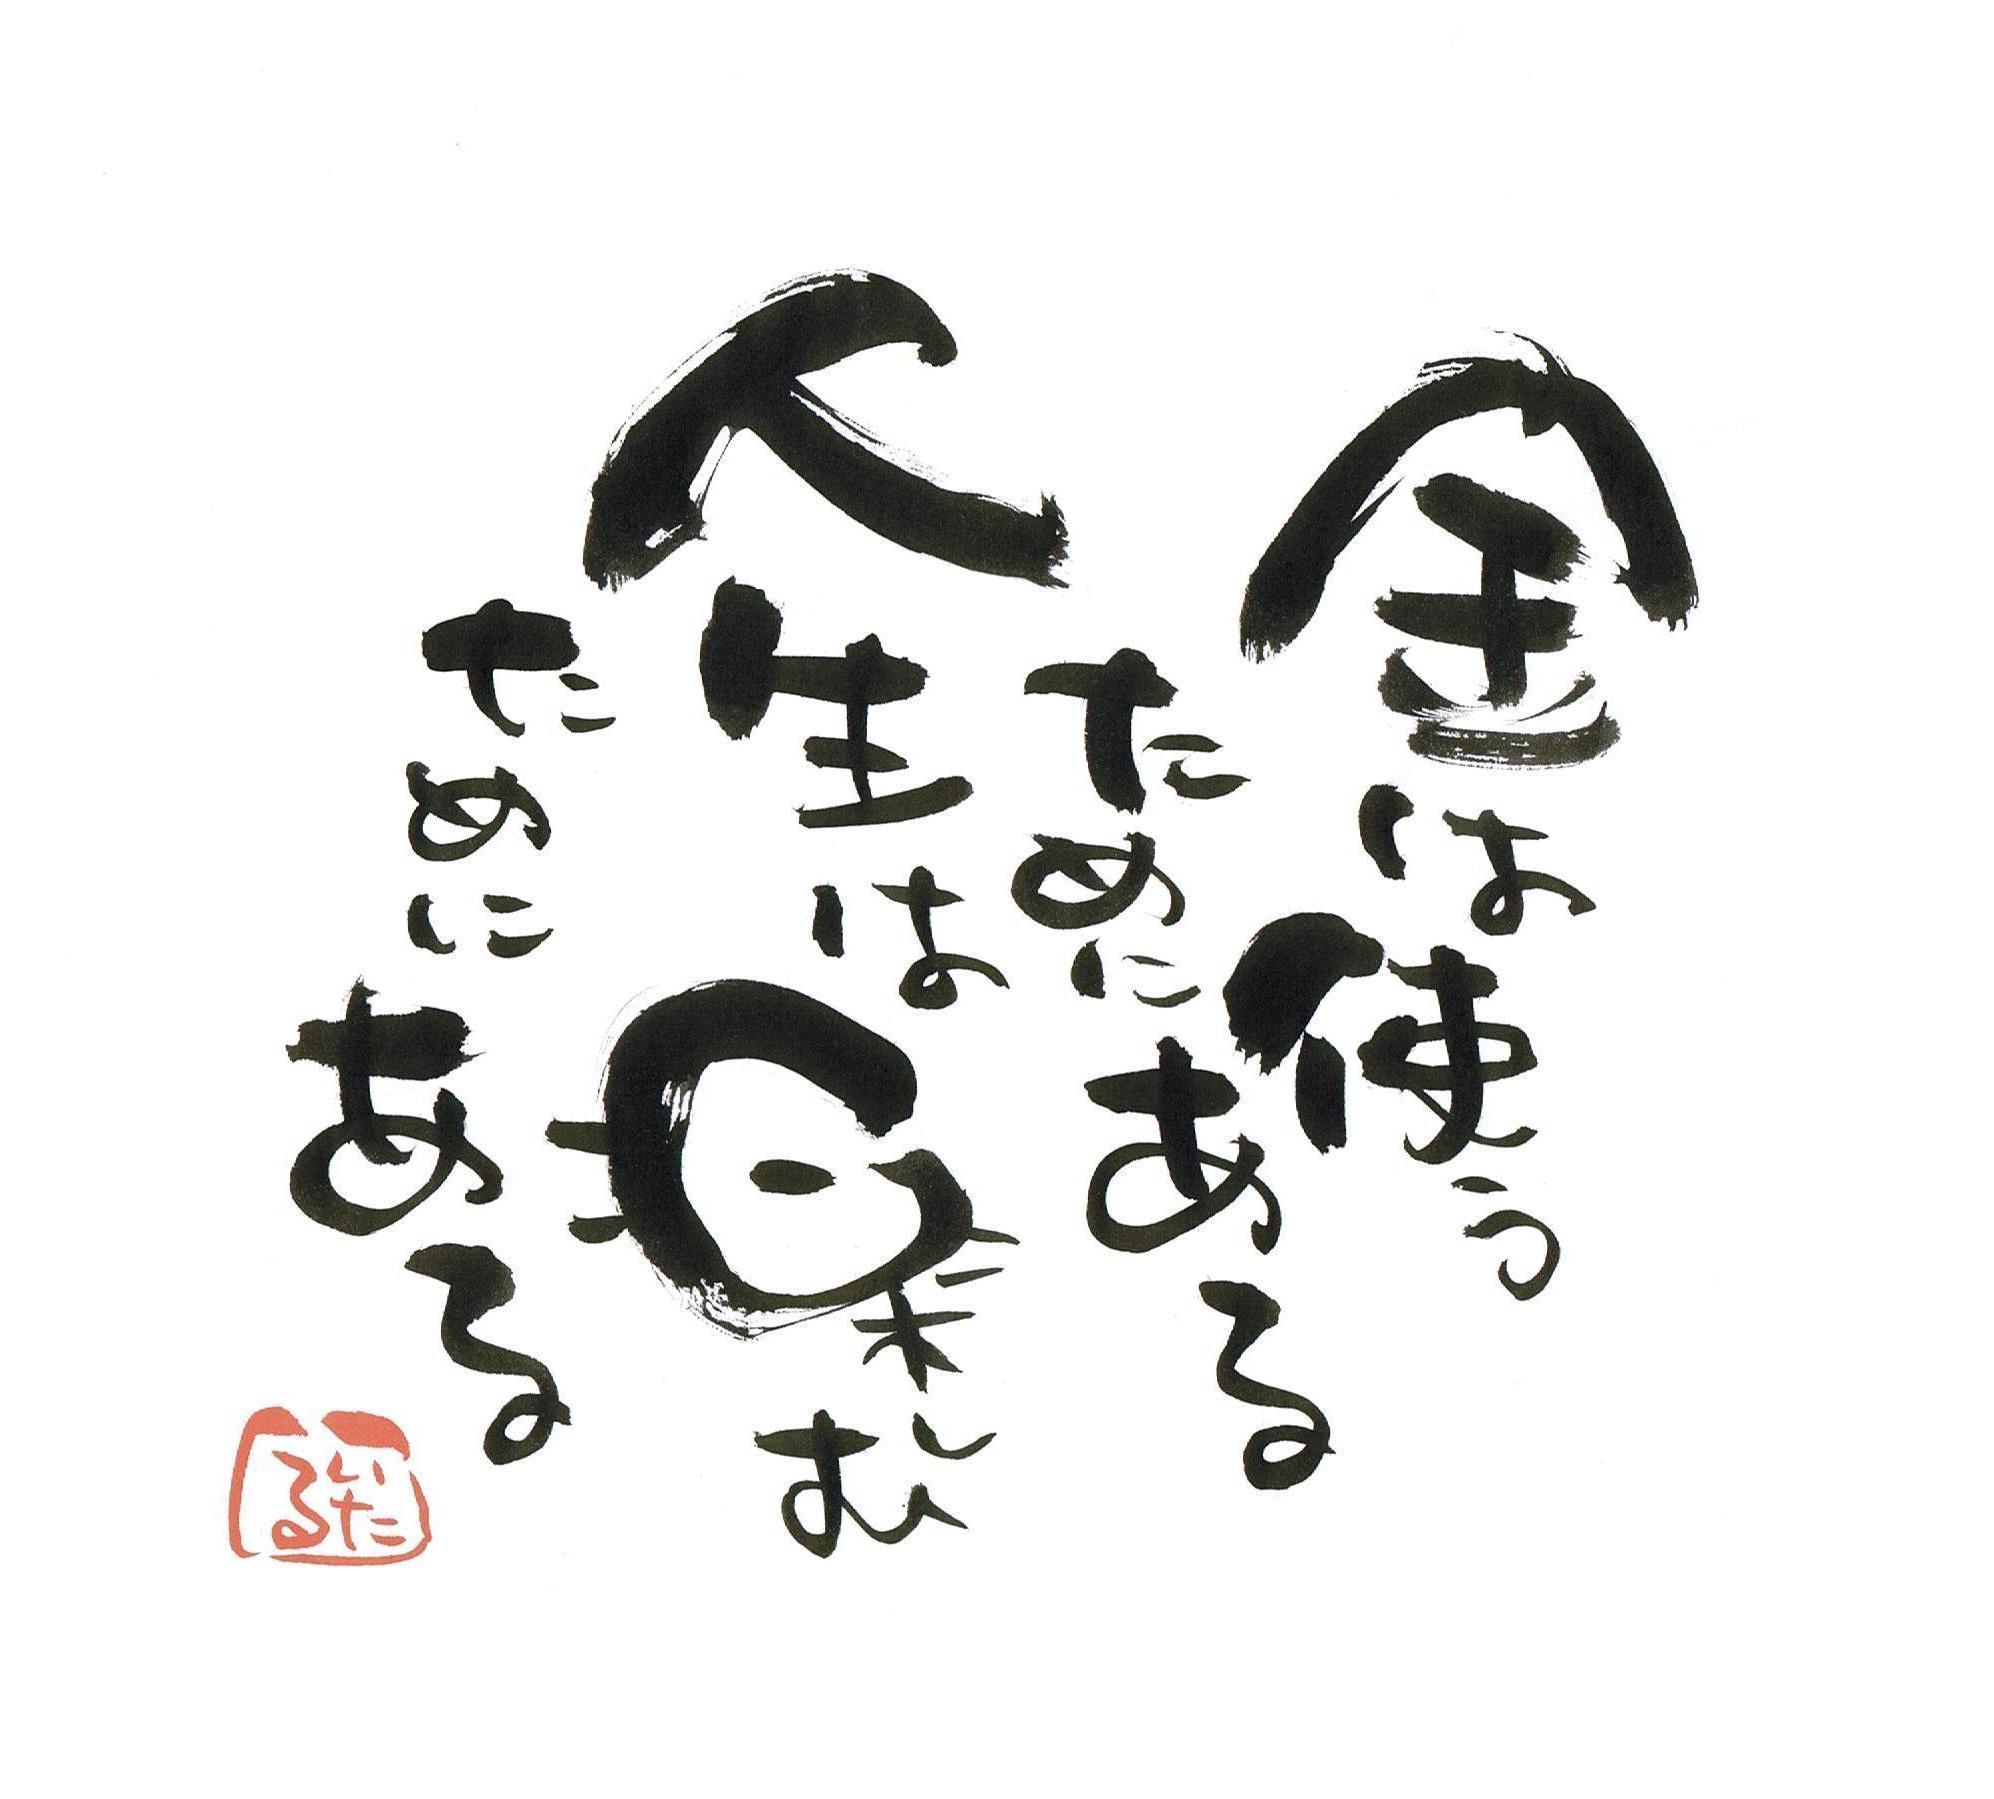 金は使う
ために
ある
人生は楽しむ
ために
ある
いたる